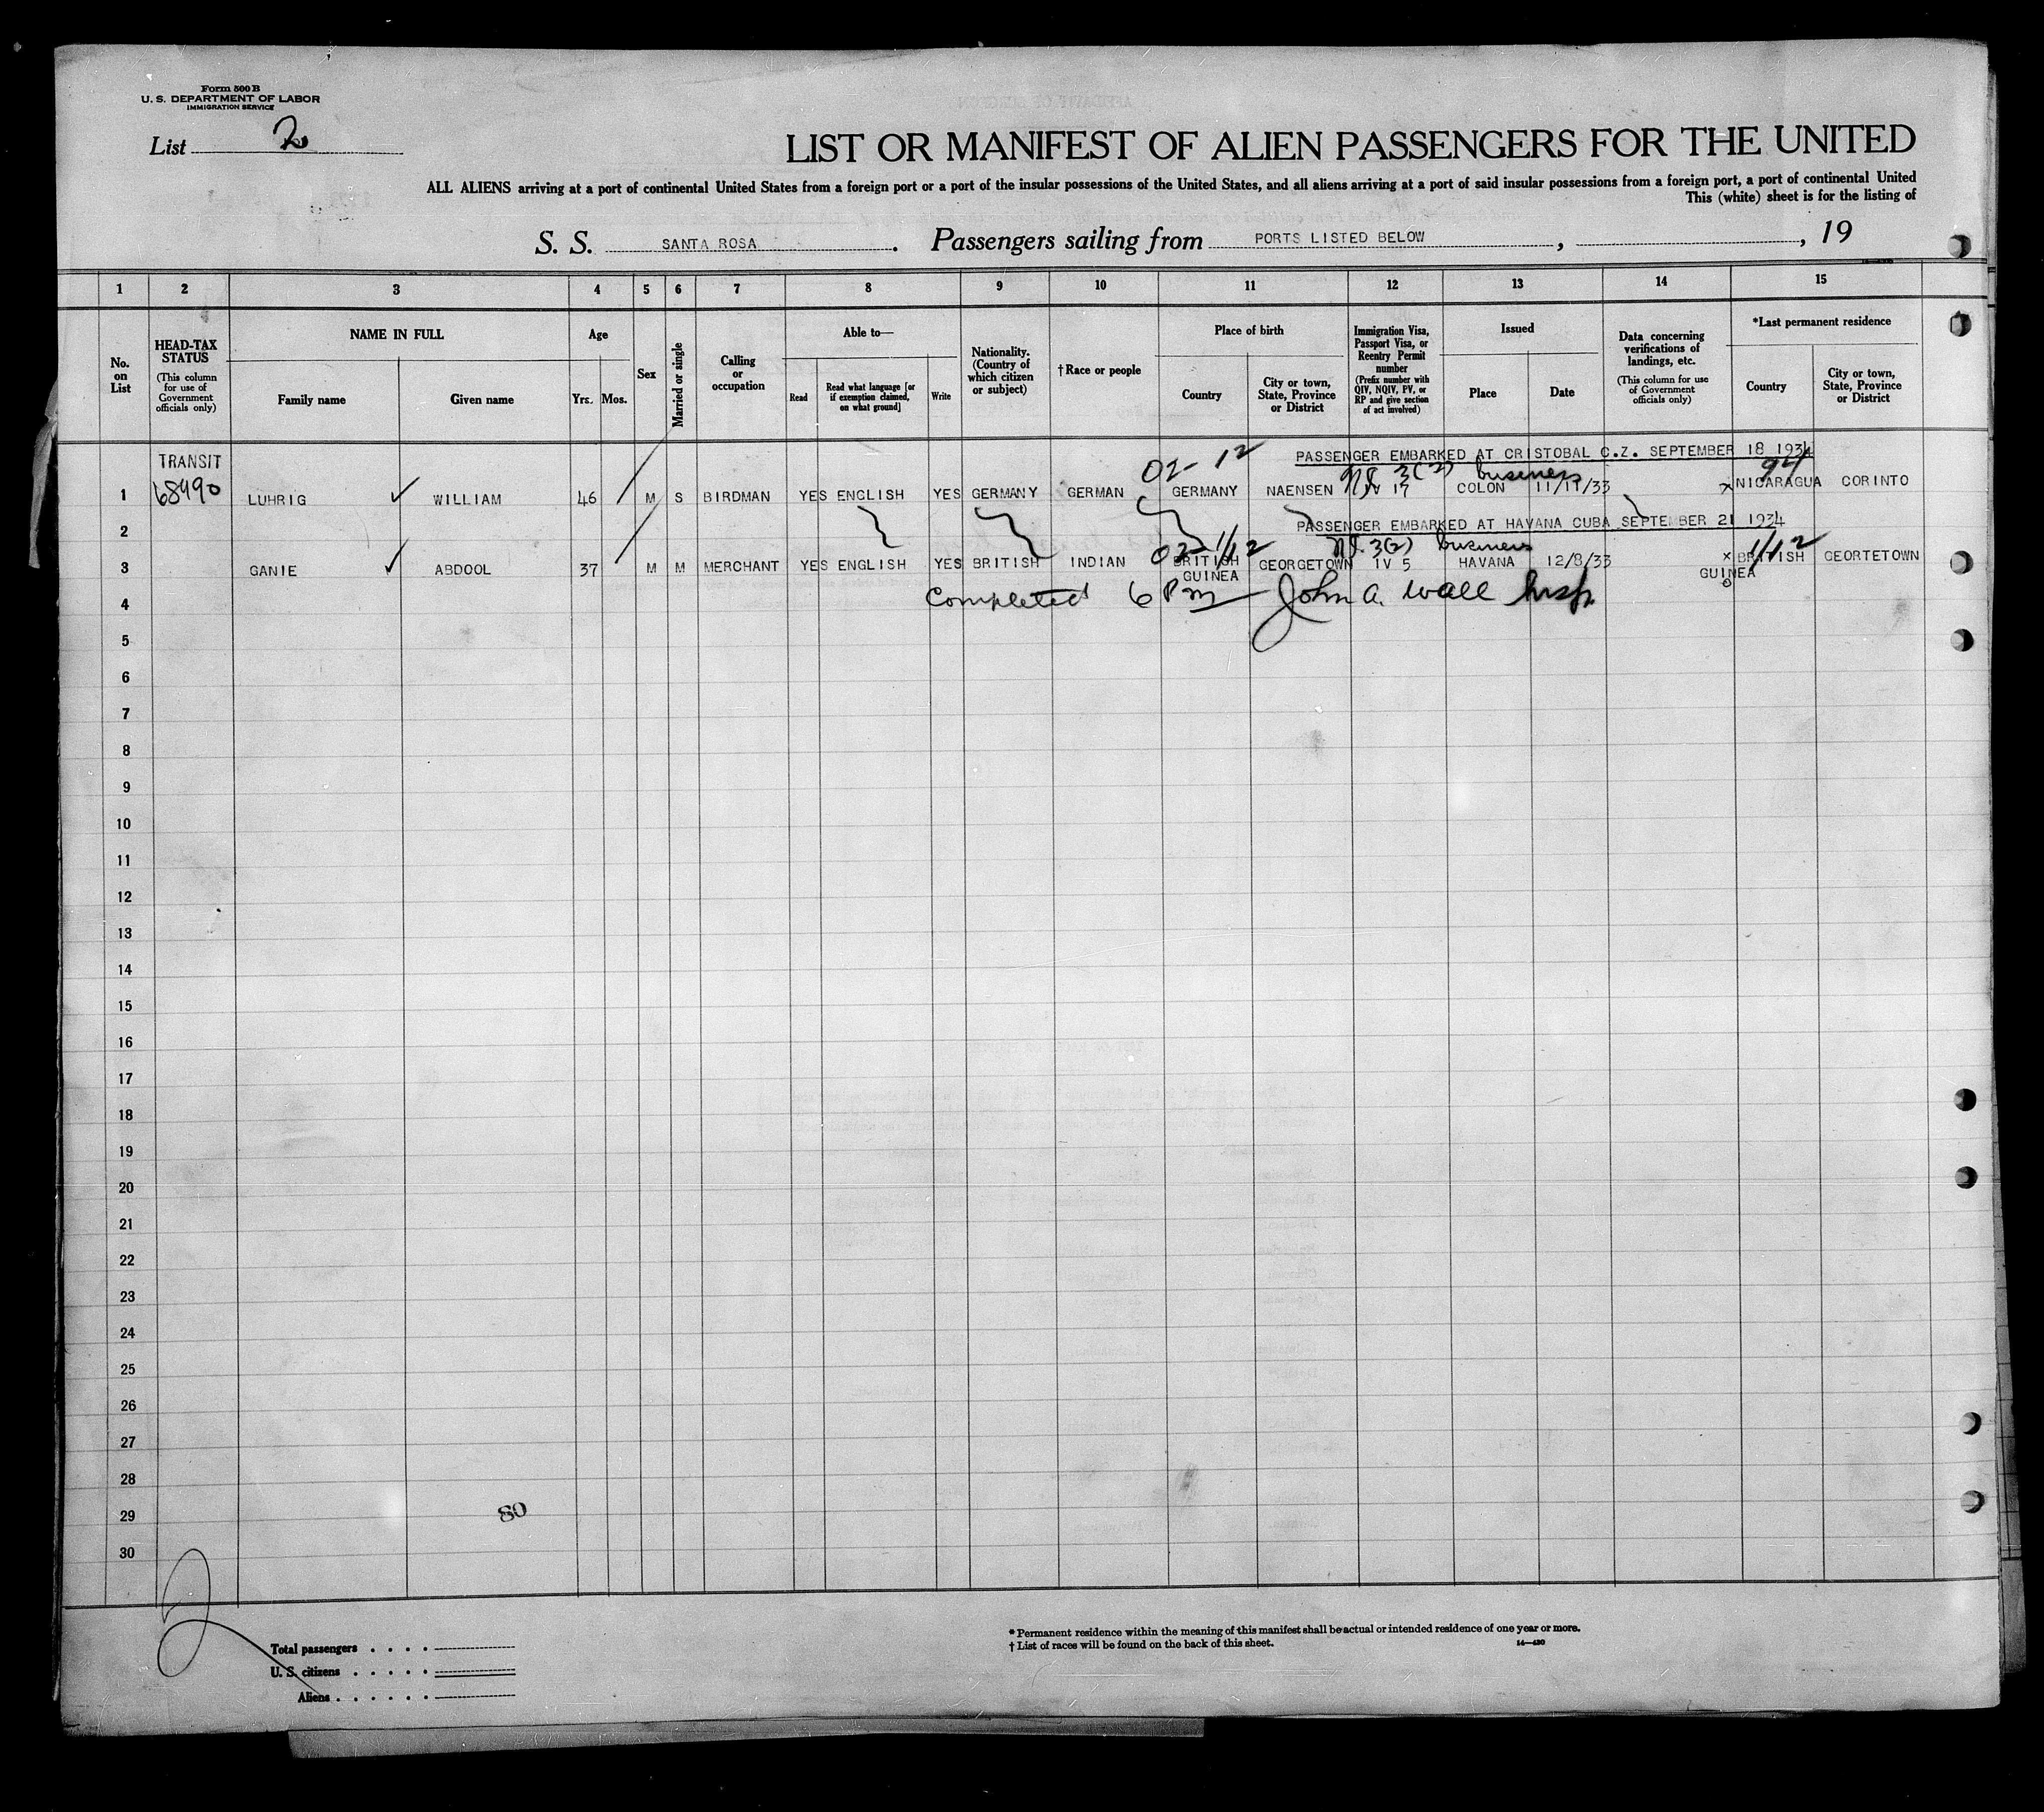 Form 500 B
U. S. DEPARTMENT OF LABOR
IMMIGRATION SERVICE
List 2
LIST OR MANIFEST OF ALIEN PASSENGERS FOR THE UNITED
ALL ALIENS arriving at a port of continental United States from a foreign port or a port of the insular possessions of the United States, and all aliens arriving at a port of said insular possessions from a foreign port, a port of continental United
This (white) sheet is for the listing of
S. S. SANTA ROSA. Passengers sailing from PORTS LISTED BELOW, , 19
1 2 3 4 5 6 7 8 9 10 11 12 13 14 15
No. on List
HEAD-TAX STATUS
(This column for use of Government officials only)
NAME IN FULL
Family name
Given name
Age
Yrs. Mos.
Sex
Married or single
Calling or occupation
Able to—
Read
Read what language [or if exemption claimed, on what ground]
Write
Nationality. (Country of which citizen or subject)
† Race or people
Place of birth
Country
City or town, State, Province or District
Immigration Visa, Passport Visa, or Reentry Permit number
(Prefix number with QIV, NQIV, PV, or RP and give section of act involved)
Issued
Place
Date
Data concerning verifications of landings, etc.
(This column for use of Government officials only)
*Last permanent residence
Country
City or town, State, Province or District
TRANSIT 02-12 PASSENGER EMBARKED AT CRISTOBAL C.Z. SEPTEMBER 18 1934
3(2) business 94
1 68490 LUHRIG WILLIAM 46 M S BIRDMAN YES ENGLISH YES GERMANY GERMAN GERMANY NAENSEN IV 17 COLON 11/11/33 x NICARAGUA CORINTO
2 PASSENGER EMBARKED AT HAVANA CUBA SEPTEMBER 21 1934
02-1/12 3(2) business 1/12
3 GANIE ABDOOL 37 M M MERCHANT YES ENGLISH YES BRITISH INDIAN BRITISH GEORGETOWN IV 5 HAVANA 12/8/33 x BRITISH GEORTETOWN
GUINEA GUINEA
4 Completed 6 PM John A. Wall Insp.
5
6
7
8
9
10
11
12
13
14
15
16
17
18
19
20
21
22
23
24
25
26
27
28
29 80
30
2
Total passengers
U. S. citizens
Aliens
* Permanent residence within the meaning of this manifest shall be actual or intended residence of one year or more.
† List of races will be found on the back of this sheet. 14—430